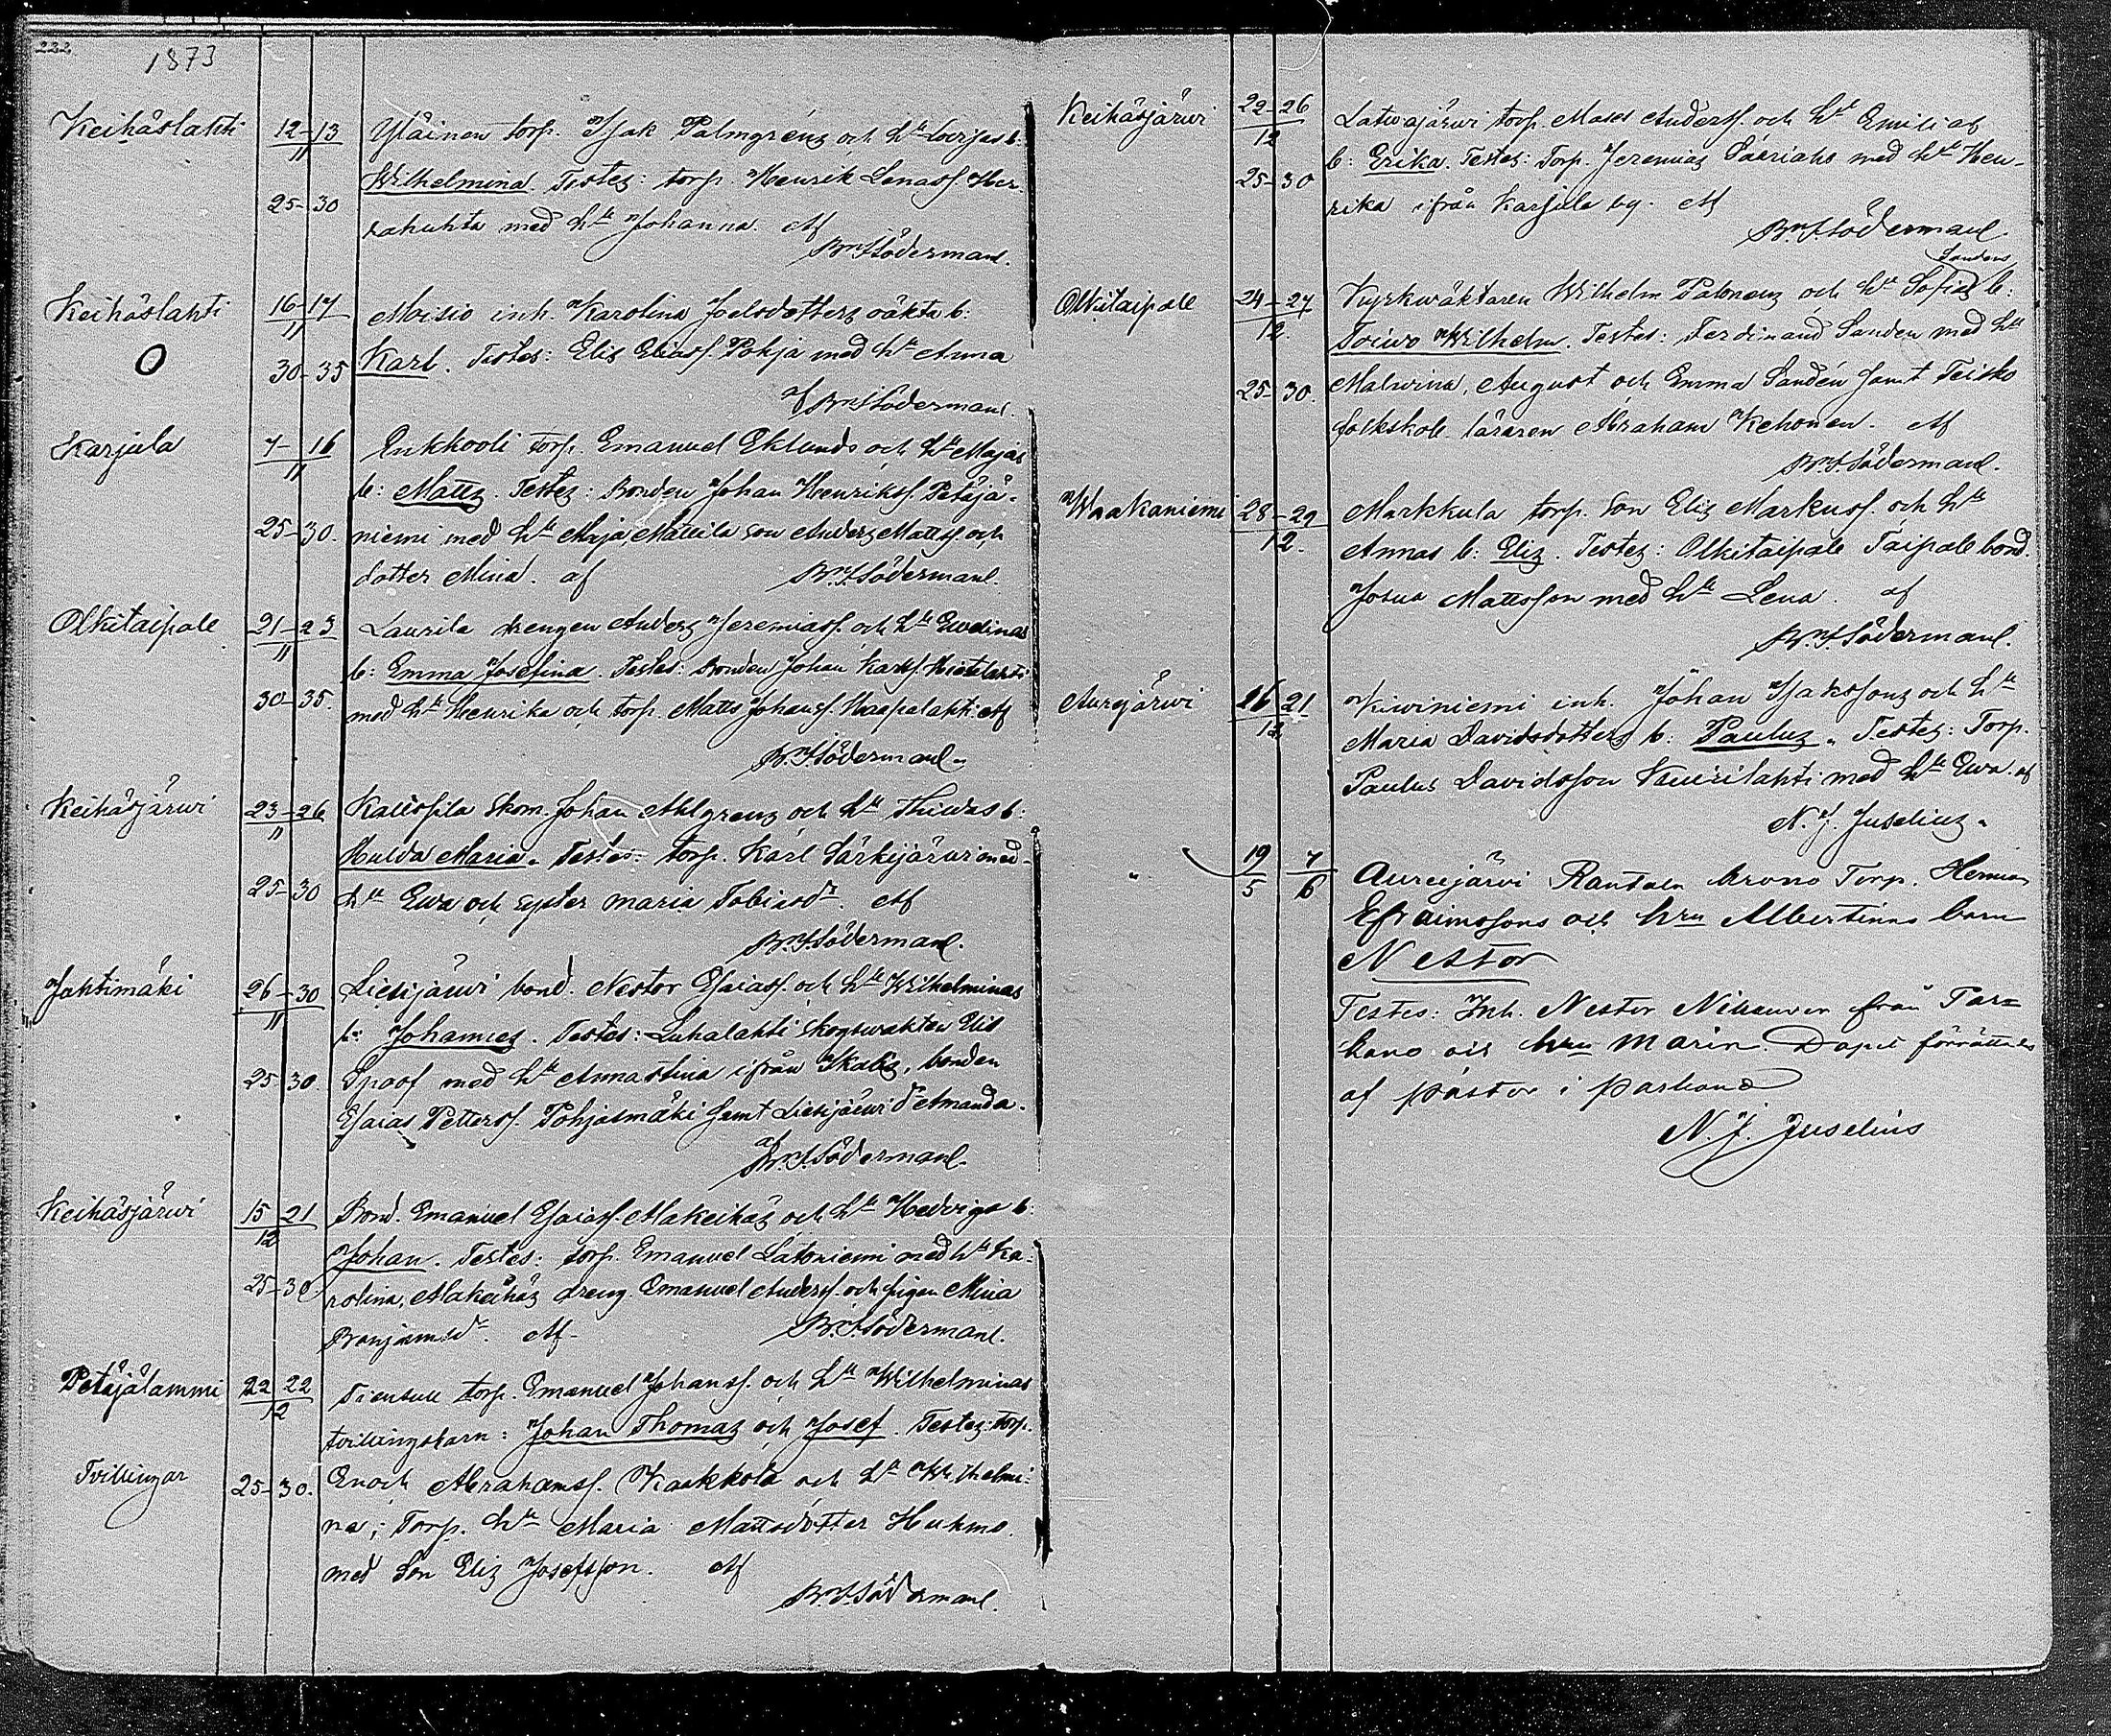 222
1873
Keihäslahti 12-13/11 Yläinen torp. Isak Palmgrens och hu Lovisas b:
Wilhelmina. Testes: torp. Henrik Lenasf. Her-
25-30 rahuhta med hu Johanna. Af
Br. F. Söderman.
Keihäslahti 16-17/11 Moisio inh. Karolina Joelsdotters oäkta b:
O 30-35 Karl. Testes: Elis Eliasf. Pohja med hu Anna
af Br. F. Söderman.
Karjula 7-16/11 torp. Emanuel Eklunds och hu Majas
b: Matts. Testes: Bonden Johan Henriksf. Petäjä-
25-30. niemi med hu Maja, Mattila son Anders Mattsf och
dotter Mina. af Br. F. Söderman.
Olkitaipale 21-23/11 Laurila drengen Anders Jeremiasf. och hu Evelinas
b: Emma Josefina. Testes: Bonden Johan Karlsf. Hietalahti
30-35. med hu Henrika och torp. Matts Johansf. Haapalahti. Af
Br. F. Söderman.
Keihäsjärwi 23-26/11 skom. Johan Ahlgrens och hu b:
Hulda Maria. Testes: torp. Karl Särkijärwi med
25-30 hu Ewa och syster Maria Tobiasdr. Af
Br. F. Söderman.
Johtimäki 26-30/11 Liesijärwi bond. Nestor Esaiasf. och hu Wilhelminas
b: Johannes. Testes: Luhalahti skogswaktar Elis
25-30. Spoof med hu Annastina ifrån Ikalis, bonden
Esaias Pettersf. Pohjasmäki samt Liesijärwi dr Amanda.
af Br. F. Söderman.
Keihäsjärwi 15-21/12 Bond. Emanuel Esaiasf. Alakeihäs och hu Hedvigs b:
Johan. Testes: torp. Emanuel Latoniemi med hu Ka-
25-30 rolina, Alakeihäs dreng. Emanuel Andersf. och pigan Mina
Benjamsdr. Af Br. F. Söderman.
Petäjälammi 22 22/12 Tiensuu torp. Emanuel Johansf. och hu Wilhelminas
tvillingsbarn: Johan Thomas och Josef. Testes: torp.
Tvillingar 25-30. Enoch Abrahamsf. Kaakkola och hu Wilhelmi-
na; Torp. hu Maria Mattsdotter
med son Elis Josefsson. Af
Br. F. Söderman.
Keihäsjärwi 22-26/12 Latwajärwi torp. Moses Andersf och hu Emilias
b: Erika. Testes: Torp. Jeremias med hu Hen-
25-30 rika ifrån Karjula by. Af
Br. F. Söderman.
Sandens
Olkitaipale 24-27/12. Kyrkwäktaren Wilhelm Palmens och hu Sofias b:
Toiwo Wilhelm. Testes: Ferdinand Sanden med hu
25-30. Malwina, August och Emma Sandén samt Teisko
folkskole läraren Abraham Kehonen. Af
Br. F. Söderman.
Waakaniemi 28-29/12. Markkula torp. son Elis Markusf. och hu
Annas b: Elis. Testes: Olkitaipale Taipale bond.
Josua Mattsson med hu Lena. af
Br. F. Söderman.
Aurejärwi 16 21/12 Kiwiniemi inh. Johan Isakssons och hu
Maria Davidsdotters b: Paulus. Testes: Torp.
Paulus Davidsson Kuusilahti med hu Ewa. af
N. J. Juselius.
" 19/5 7/6 Aurejärvi Rantala krono Torp.
Efraimssons och hru Albertinas barn
Nestor
Testes: Inh. Nestor från Par-
kano och hru Maria. Dopet förrättades
af pastor i Parkano
N. J. Juselius